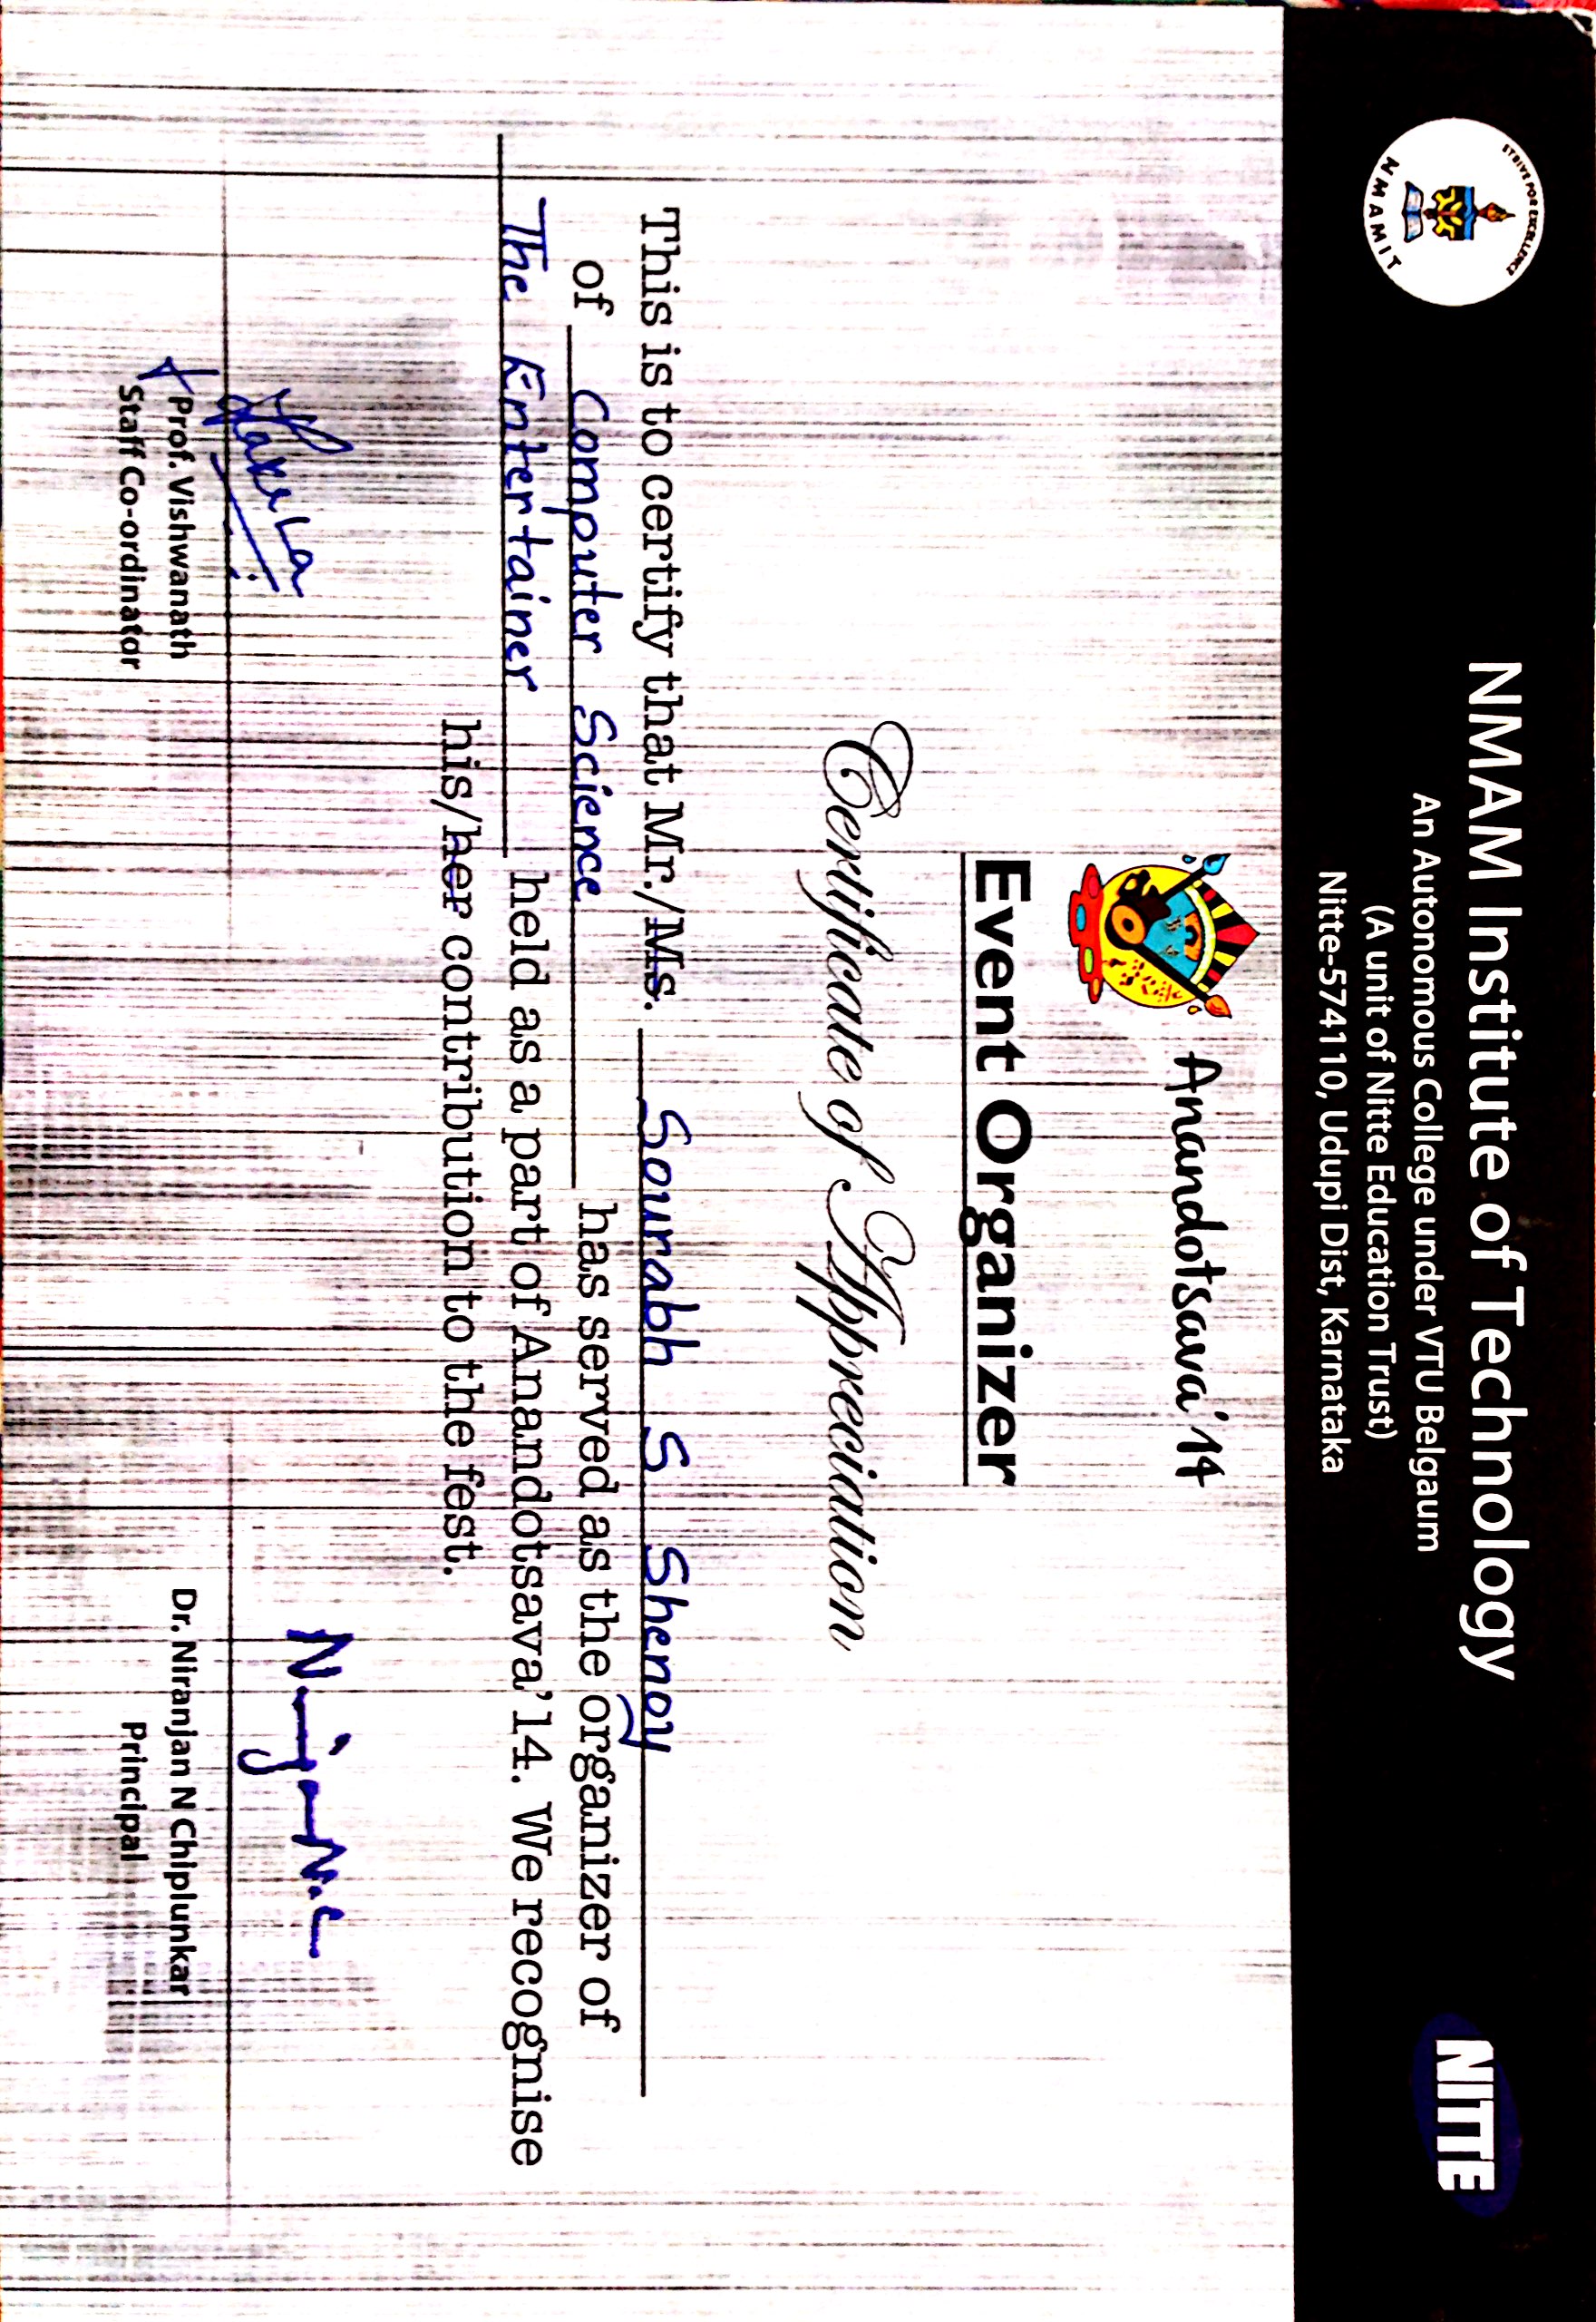 STRIVE FOR EXCELLENCE
NMAMIT
NMAM Institute of Technology
An Autonomous College under VTU Belgaum
(A unit of Nitte Education Trust)
Nitte-574110, Udupi Dist, Karnataka
NITTE
Anandotsava'14
Event Organizer
Certificate of Appreciation
This is to certify that Mr./Ms. Sourabh S Shenoy
of Computer Science has served as the organizer of
The Entertainer held as a part of Anandotsava'14. We recognise
his/her contribution to the fest.
Niranjan N.C
Prof. Vishwanath
Staff Co-ordinator
Dr. Niranjan N Chiplunkar
Principal